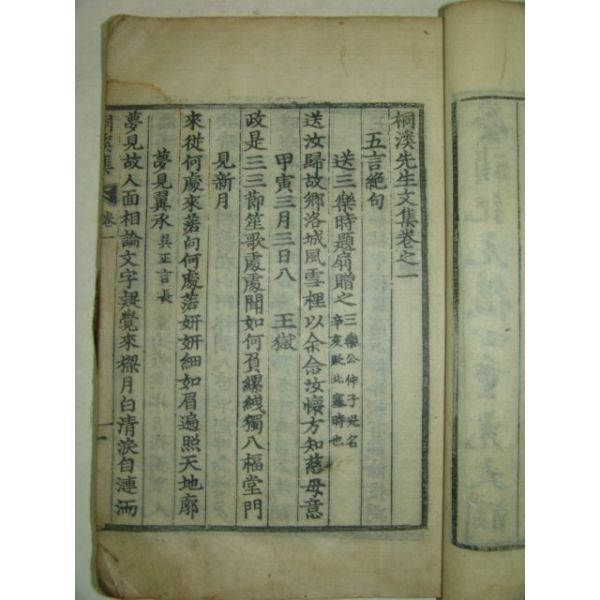 桐溪先生文集卷之一
五言絶句
送三樂時題扇贈之 三樂公仲子兒名
辛亥貶北塞時也
送汝歸故鄉洛城風雪裡以余念汝懷方知慈母意
甲寅三月三日入 王獄
政是三三節笙歌處處聞如何負縲絏獨入福堂門
見新月
來從何處來落向何處落姸姸細如眉遍照天地廓
夢見翼承 吳正言長
夢見故人面相論文字疑覺來樑月白清淚自漣洏
桐溪集 卷一 一